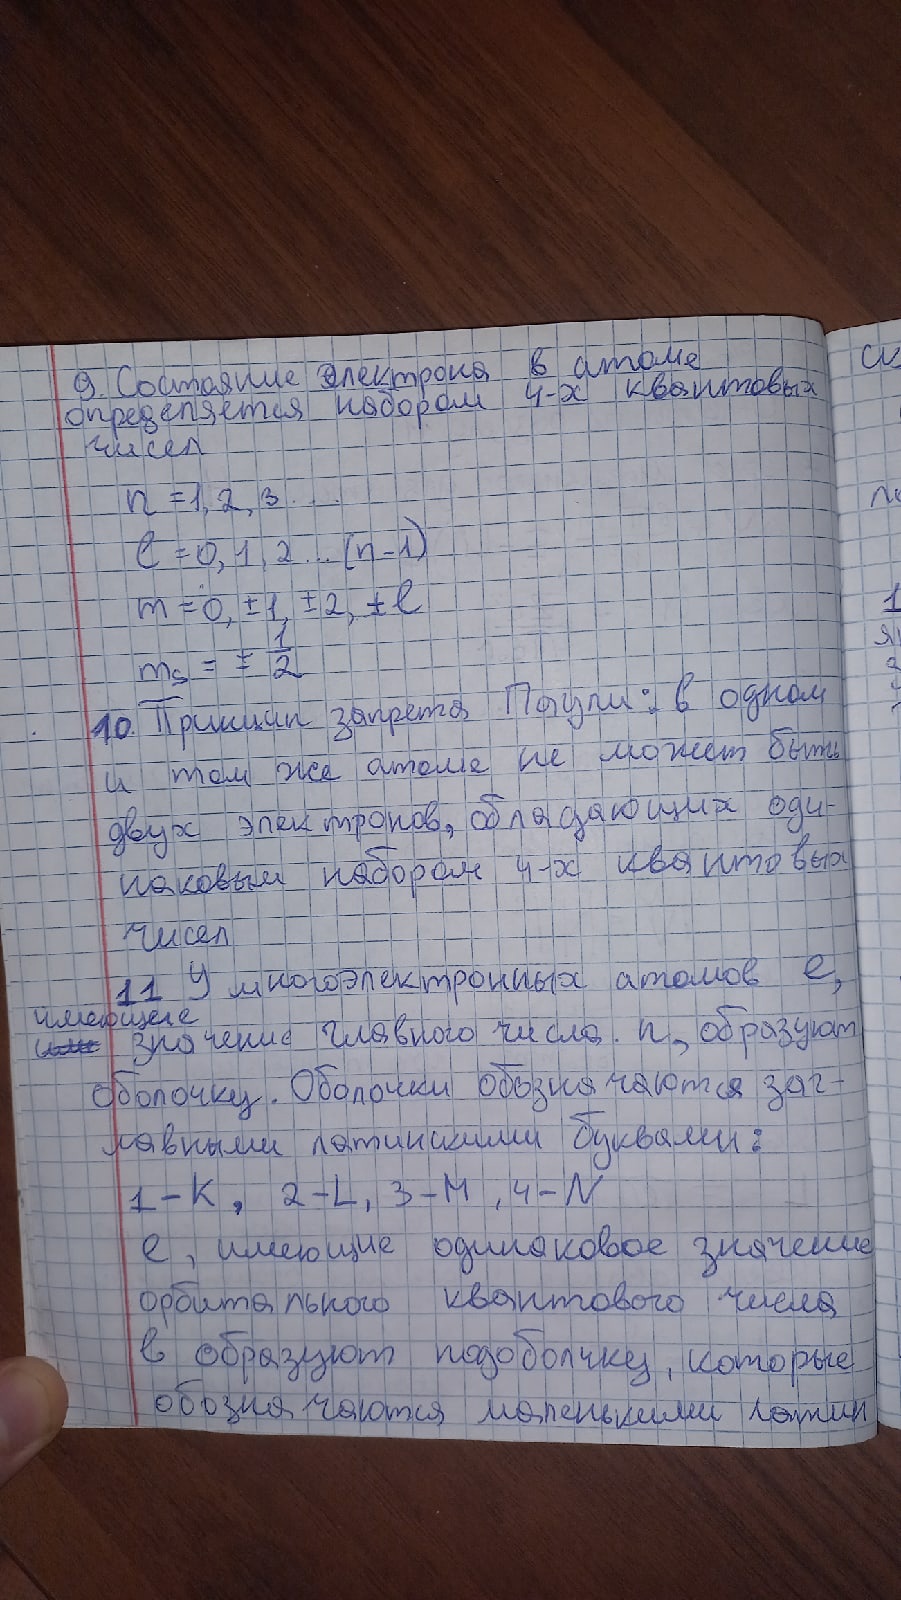 9. Состояние электрона в атоме
определяется набором 4-х квантовых
чисел
n = 1, 2, 3 ...
l = 0, 1, 2 ... (n-1)
m = 0, ±1, ±2, ±l
ms = ± 1/2
10. Принцип запрета Паули: в одном
и том же атоме не может быть
двух электронов, обладающих оди-
наковым набором 4-х квантовых
чисел
11 У многоэлектронных атомов e,
имеющие
значение главного числа n, образуют
оболочку. Оболочки обозначаются заг-
лавными латинскими буквами:
1-K, 2-L, 3-M, 4-N
e, имеющие одинаковое значение
орбитального квантового числа
l образуют подоболчку, которые
обозначаются маленькими латин